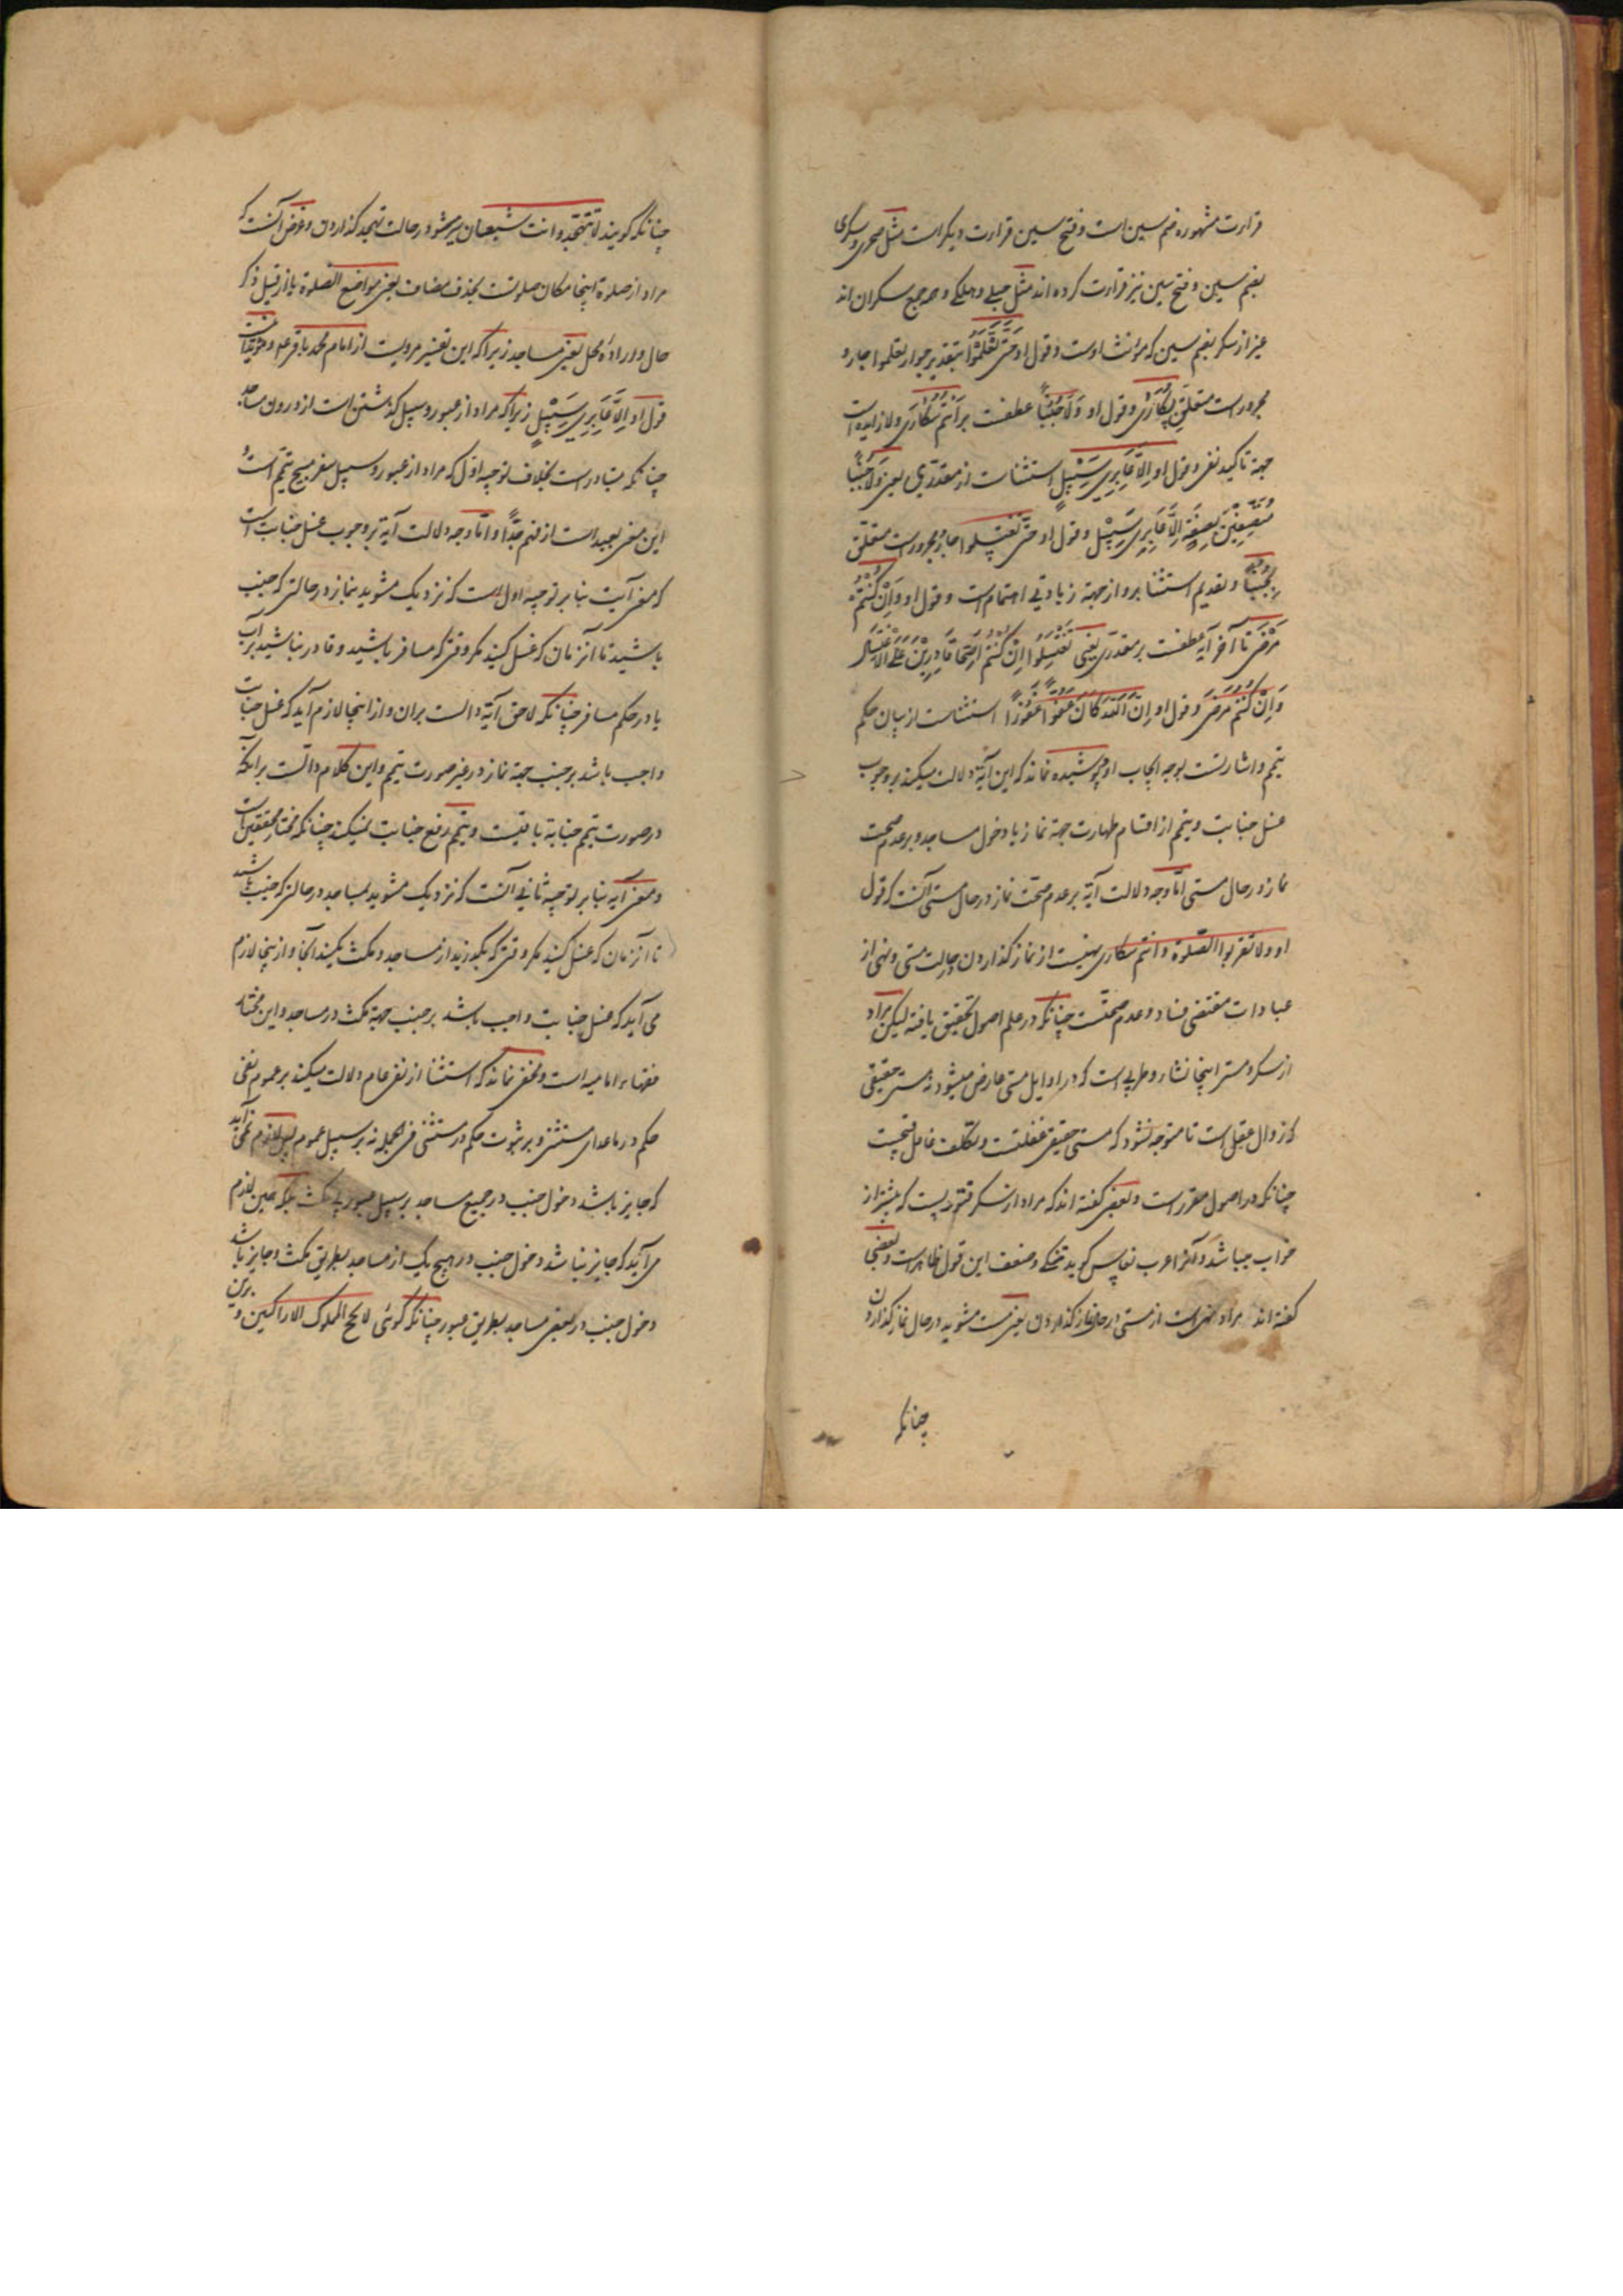 قراءت مشهوره ضم سین است و فتح سین قراءت دیگر است مثل صحری و سکری
بضم سین و فتح سین نیز قراءت کرده اند مثل حبلی و هلکی و همه جمع سکران اند
غیر از سکر بضم سین که مؤنث اوست و قول او حَتّٰی تَعْلَمُوْا بتقدیر جواز تعلموا جار و
مجرور است متعلق بسُکَارٰی و قول او وَلَا جُنُبًا عطفست بر اَنْتُمْ سُکَارٰی و لا زایده است
جهة تاکید نفی و قول او اِلَّا عَابِرِی سَبِیْلٍ استثناست از مقدری یعنی وَلَا جُنُبًا
مُتَّصِفِیْنَ بِصِفَةٍ اِلَّا عَابِرِی سَبِیْلٍ و قول او حَتّٰی تَغْتَسِلوا جار و مجرور است متعلق
بجُنُبًا و تقدیم استثنا برو از جهة زیادتی اهتمام است و قول او وَاِنْ کُنْتُمْ
مَرْضٰی تا آخر آیه عطفست بر مقدری یعنی تَغْتَسِلُوا اِنْ کُنْتُمْ اَصِحَّاءَ قَادِرِیْنَ عَلَی الاغْتِسَالِ
وَاِنْ کُنْتُمْ مَرْضٰی و قول او اِنَّ اللّٰهَ کَانَ عَفُوًّا غَفُوْرًا استثناست از بیان حکم
تیمم و اشارتست بوجه ایجاب او پوشیده نماند که این آیة دلالت میکند بر وجوب
غسل جنابت و تیمم از اقسام طهارت جهة نماز یا دخول مساجد و بر عدم صحت
نماز در حال مستی اما وجه دلالت آیة بر عدم صحت نماز در حال مستی آنست که قول
او ولا تقربوا الصلوة و انتم سکاری نهیست از نماز گذاردن در حالت مستی و نهی از
عبادات مقتضی فساد و عدم صحتست چنانکه در علم اصول تحقیق یافته لیکن مراد
از سکر و مستی اینجا نشاء و طربی است که در اوایل مستی عارض میشود نه مستی حقیقی
که زوال عقل است تا متوجه نشود که مستی حقیقی غفلتست و تکلیف غافل قبیحست
چنانکه در اصول مقرر است و بعضی گفته اند که مراد از سکر فتوریست که پیشتر از
خواب میباشد و آنرا عرب نعاس گوید و ضعف این قول ظاهر است و بعضی
گفته اند مراد نهی است از مستی در حال نماز گذاردن یعنی مست مشوید در حال نماز گذاردن
چنانکه
چنانکه گویند لا تتهجد و انت شبعان سیر مشو در حالت تهجد گذاردن و بعضی آنست که
مراد از صلوة اینجا مکان صلوتست بحذف مضاف یعنی مواضع الصلوة یا از قبیل ذکر
حال و اراده محل یعنی مساجد زیرا که این تفسیر مرویست از امام محمد باقر ع م و
قول او اِلَّا عَابِرِی سَبِیْلٍ زیرا که مراد از عبور و سبیل گذشتن است از درون مساجد
چنانکه متبادر است بخلاف توجیه اول که مراد از عبور و سبیل سفر مبیح تیمم است و
این معنی بعید است از فهم جدًّا و اما وجه دلالت آیة بر وجوب غسل جنابت است
که معنی آیت بنابر توجیه اول است که نزدیک مشوید بنماز در حالتی که جنب
باشید تا آنزمان که غسل کنید مگر وقتی که مسافر باشید و قادر نباشید بر آب
یا در حکم مسافر چنانکه لاحق آیة دالست بران و از اینجا لازم آید که غسل جنابت
واجب باشد بر جنب جهة نماز در غیر صورت تیمم و این کلام دالست برآنکه
در صورت تیمم جنابة باقیست و تیمم رفع جنابت نمیکند چنانکه مختار محققین است
و معنی آیه بنابر توجیه ثانی آنست که نزدیک مشوید بمساجد در حالتی که جنب باشید
تا آنزمان که غسل کنید مگر وقتی که بگذرید از مساجد و مکث نکنید آنجا و از اینجا لازم
می آید که غسل جنابت واجب باشد بر جنب جهة مکث در مساجد و این مختار
فقهاء امامیه است و مخفی نماند که استثنا از نفی عام دلالت میکند بر عموم نفی
حکم در ماعدای مستثنی و بر ثبوت حکم در مستثنی فی الجمله نه بر سبیل عموم پس لازم نمی آید
که جایز باشد دخول جنب در جمیع مساجد بر سبیل عبور بی مکث بلکه همین لازم
می آید که جایز نباشد دخول جنب در هیچ یک از مساجد بطریق مکث و جایز باشد
دخول جنب در بعضی مساجد بطریق عبور چنانکه گوئی لا یحج الملوک الا راکبین و برین